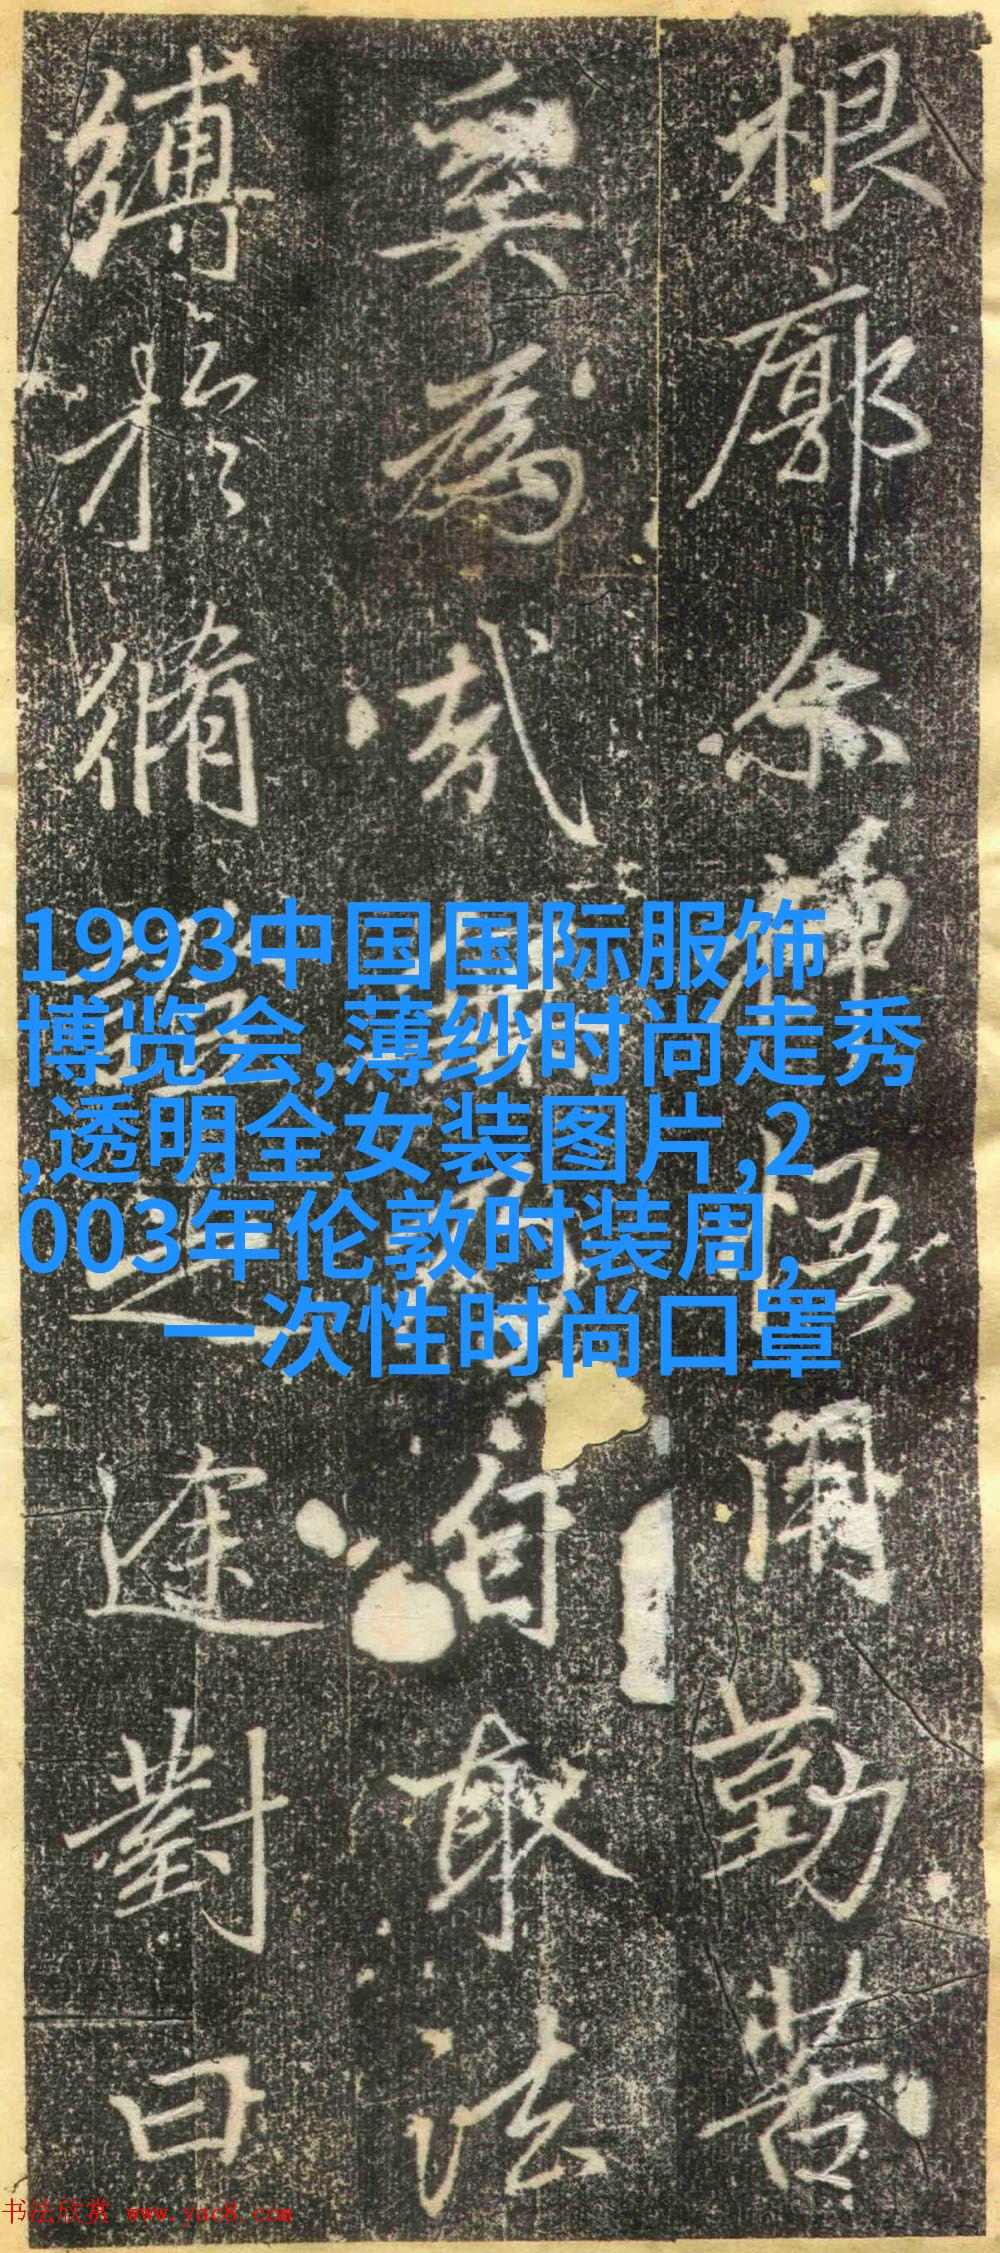 根廓尔神悟用勤苦
奚為哉自取法
縛於脩證之途對曰
1993中国国际服饰
博览会,薄纱时尚走秀
,透明全女装图片,2
003年伦敦时装周,
一次性时尚口罩
书法欣赏 www.yac8.com